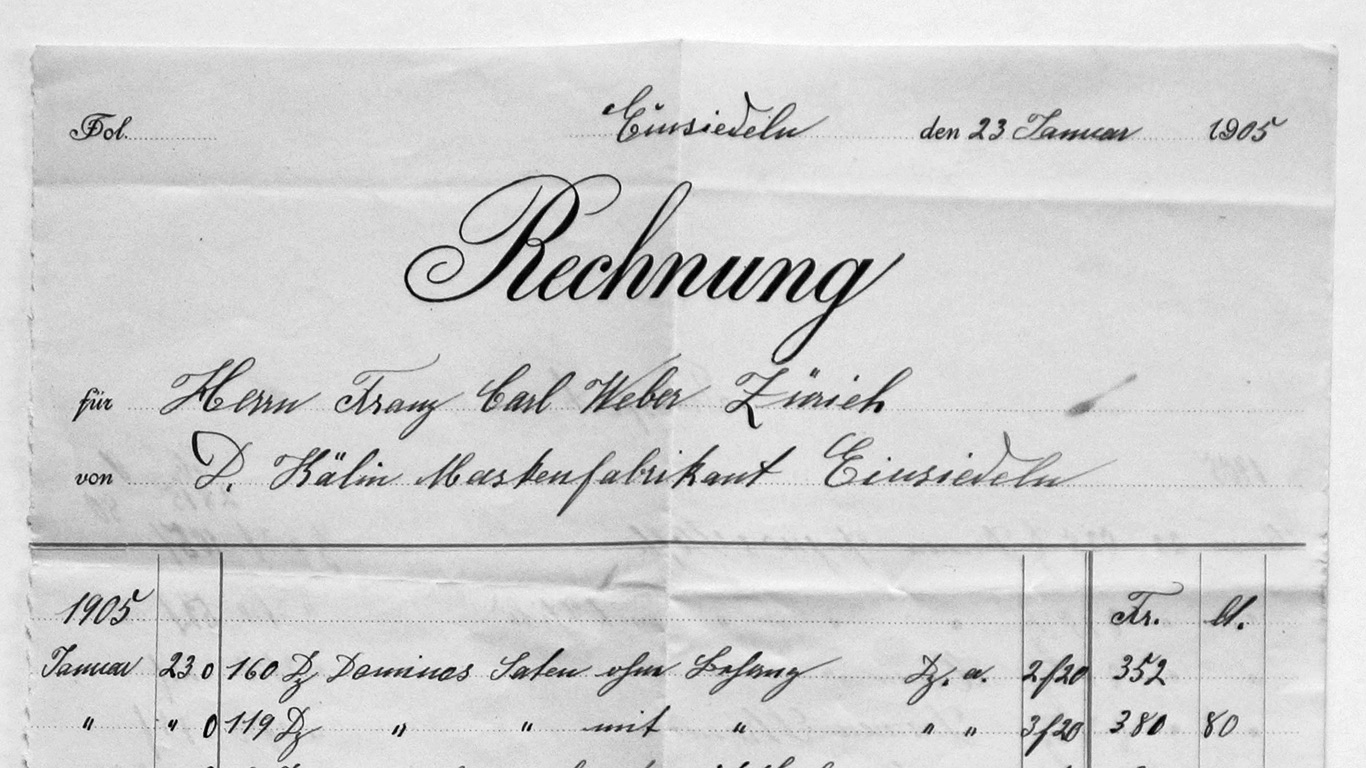 Fol. Einsiedeln den 23 Januar 1905
Rechnung
für Herrn Franz Carl Weber Zürich
von D. Kälin Maskenfabrikant Einsiedeln
1905 Fr. Ct.
Januar 23 0 160 Dz Dominos Saten ohne Behang Dz. a. 2/20 352
" " 0 119 Dz " " mit " " " 3/20 380 80